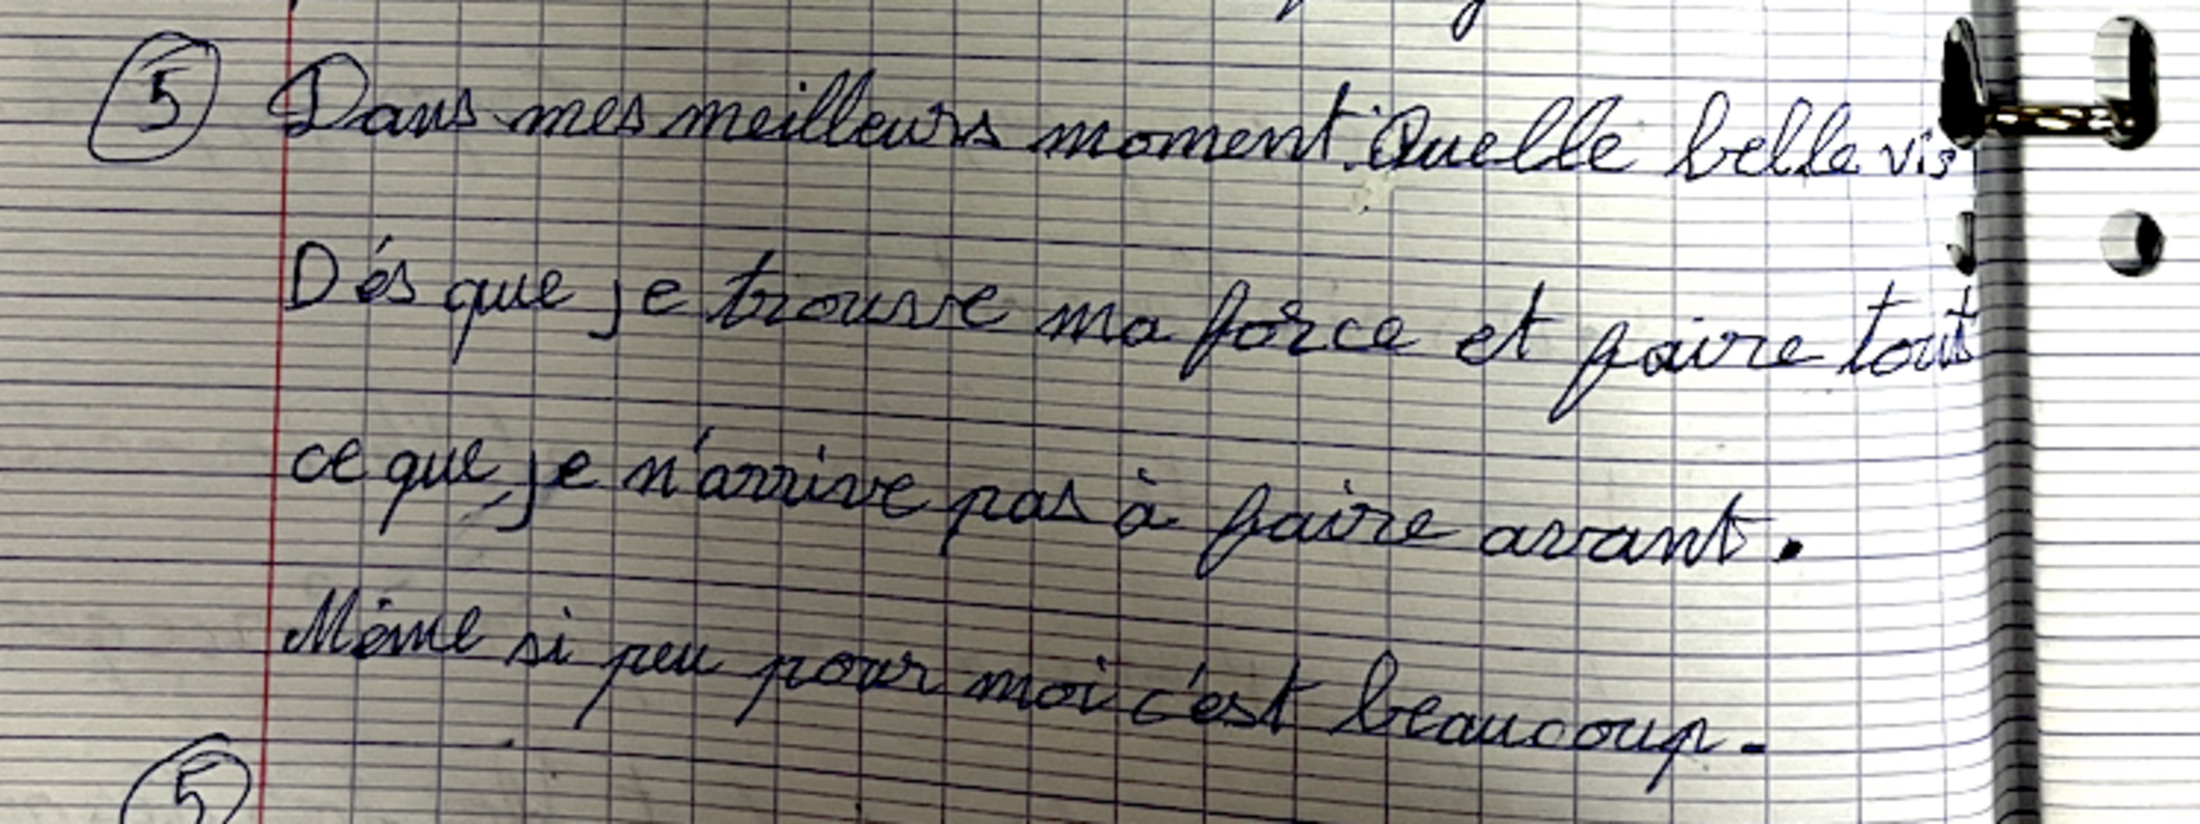 5 Dans mes meilleurs moment. Quelle belle vis
Dés que je trouve ma force et faire tout
ce que je n'arrive pas à faire avant.
Même si peu pour moi c'est beaucoup.
5